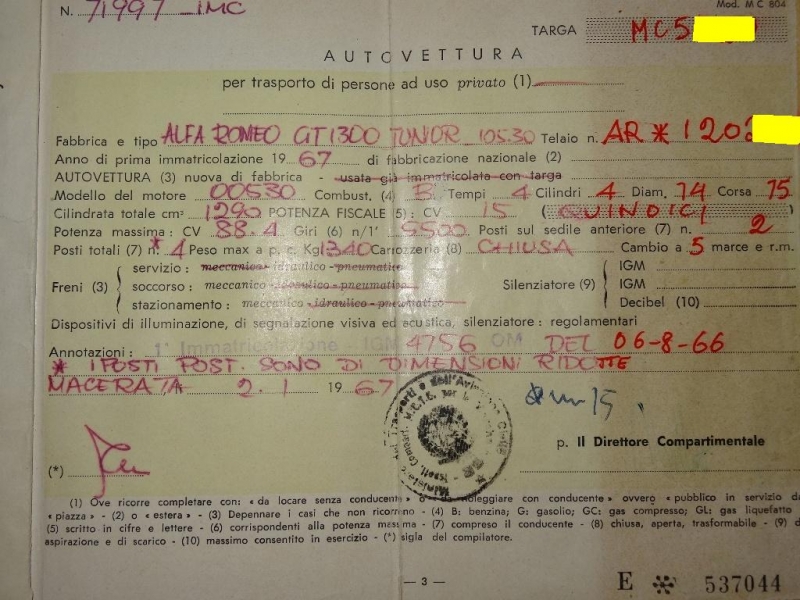 N. 71997 IMC
Mod. MC 804
TARGA MC5
AUTOVETTURA
per trasporto di persone ad uso privato (1)
Fabbrica e tipo ALFA ROMEO GT1300 JUNIOR 105.30 Telaio n. AR * 120
Anno di prima immatricolazione 1967 di fabbricazione nazionale (2)
AUTOVETTURA (3) nuova di fabbrica - usata già immatricolata con targa
Modello del motore 00530 Combust. (4) B. Tempi 4 Cilindri 4 Diam. 74 Corsa 75
Cilindrata totale cm³ 1290 POTENZA FISCALE (5): CV 15 (QUINDICI)
Potenza massima: CV 88.4 Giri (6) n/1' 5500 Posti sul sedile anteriore (7) n. 2
Posti totali (7) n. * 4 Peso max a p. c. Kg 1340 Carrozzeria (8) CHIUSA Cambio a 5 marce e r.m.
Freni (3)
servizio: meccanico - idraulico - pneumatico
soccorso: meccanico - idraulico - pneumatico
stazionamento: meccanico - idraulico - pneumatico
Silenziatore (9)
IGM
IGM
Decibel (10)
Dispositivi di illuminazione, di segnalazione visiva ed acustica, silenziatore: regolamentari
Annotazioni: 1ª Immatricolazione - IGM 4756 OM DEL 06-8-66
* I POSTI POST. SONO DI DIMENSIONI RIDOTTE
MACERATA 2.1 1967
p. Il Direttore Compartimentale
(*)
(1) Ove ricorre completare con: « da locare senza conducente » o « da noleggiare con conducente » ovvero « pubblico in servizio da
« piazza » - (2) o « estera » - (3) Depennare i casi che non ricorrono - (4) B: benzina; G: gasolio; GC: gas compresso; GL: gas liquefatto
(5) scritto in cifre e lettere - (6) corrispondenti alla potenza massima - (7) compreso il conducente - (8) chiusa, aperta, trasformabile - (9) d
aspirazione e di scarico - (10) massimo consentito in esercizio - (*) sigla del compilatore.
— 3 —
E 537044